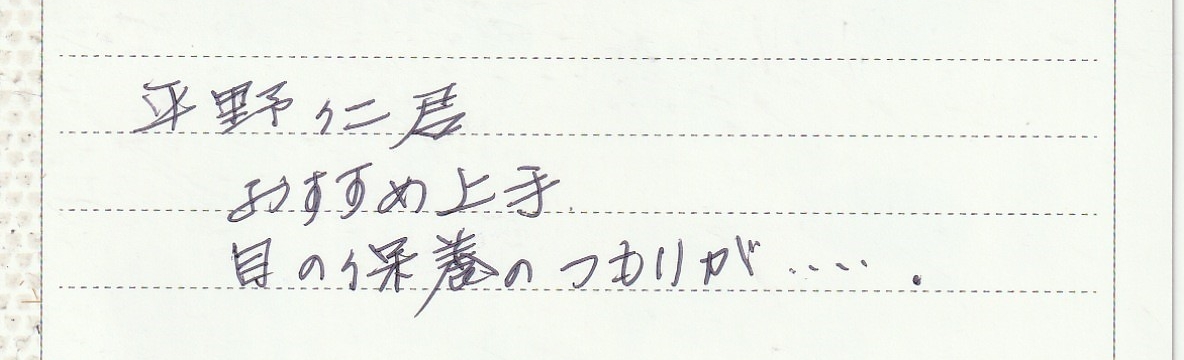 平野仁君
おすすめ上手
目の保養のつもりが‥‥.